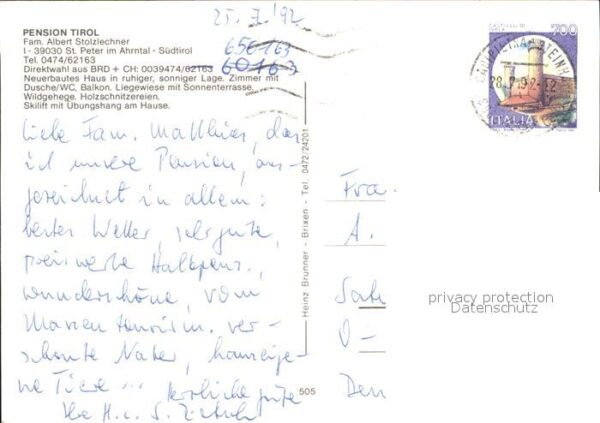 25.7.'92
PENSION TIROL
Fam. Albert Stolzlechner
I - 39030 St. Peter im Ahrntal - Südtirol
Tel. 0474/62163
650163
Direktwahl aus BRD + CH: 0039474/62163
60163
Neuerbautes Haus in ruhiger, sonniger Lage. Zimmer mit
Dusche/WC, Balkon. Liegewiese mit Sonnenterrasse.
Wildgehege. Holzschnitzereien.
Skilift mit Übungshang am Hause.
Liebe Fam. Matthias, das
ist unsere Pension, aus-
gezeichnet in allem:
bestes Wetter, sehr gute,
preiswerte Halbpens.,
wunderschöne, vom
Massentourism. ver-
schonte Natur, hauseige-
ne Tiere ... herzliche Grüße
Ihre H. u. S.
Heinz Brunner - Brixen - Tel. 0472/24201
505
700
ITALIA
28.7.92-12
Fra
A.
Sate
O-
Den
privacy protection
Datenschutz